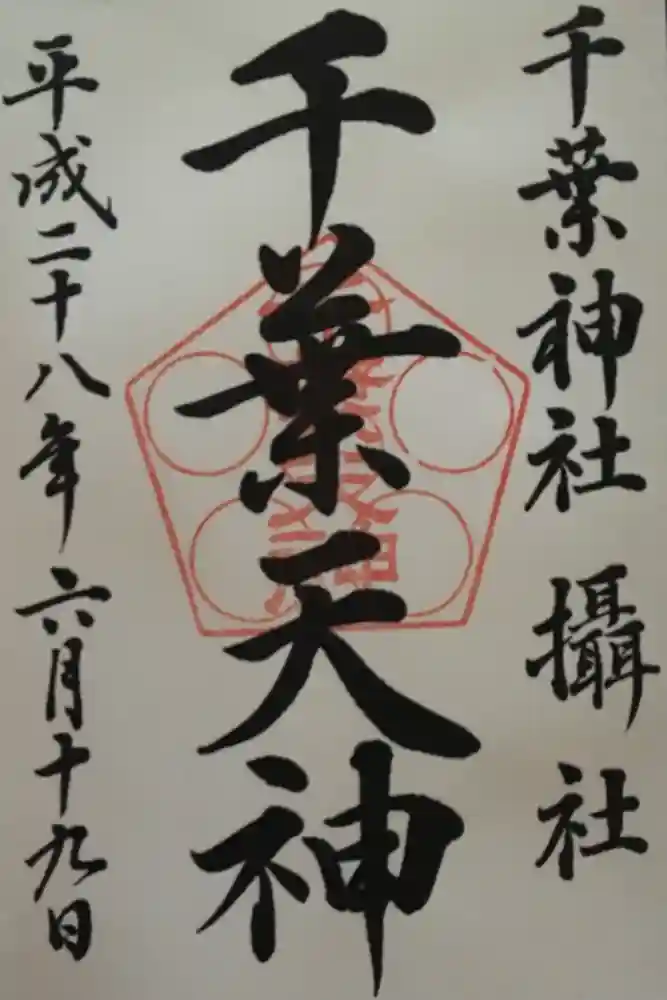 千葉神社 攝社
千葉天神
平成二十八年六月十九日